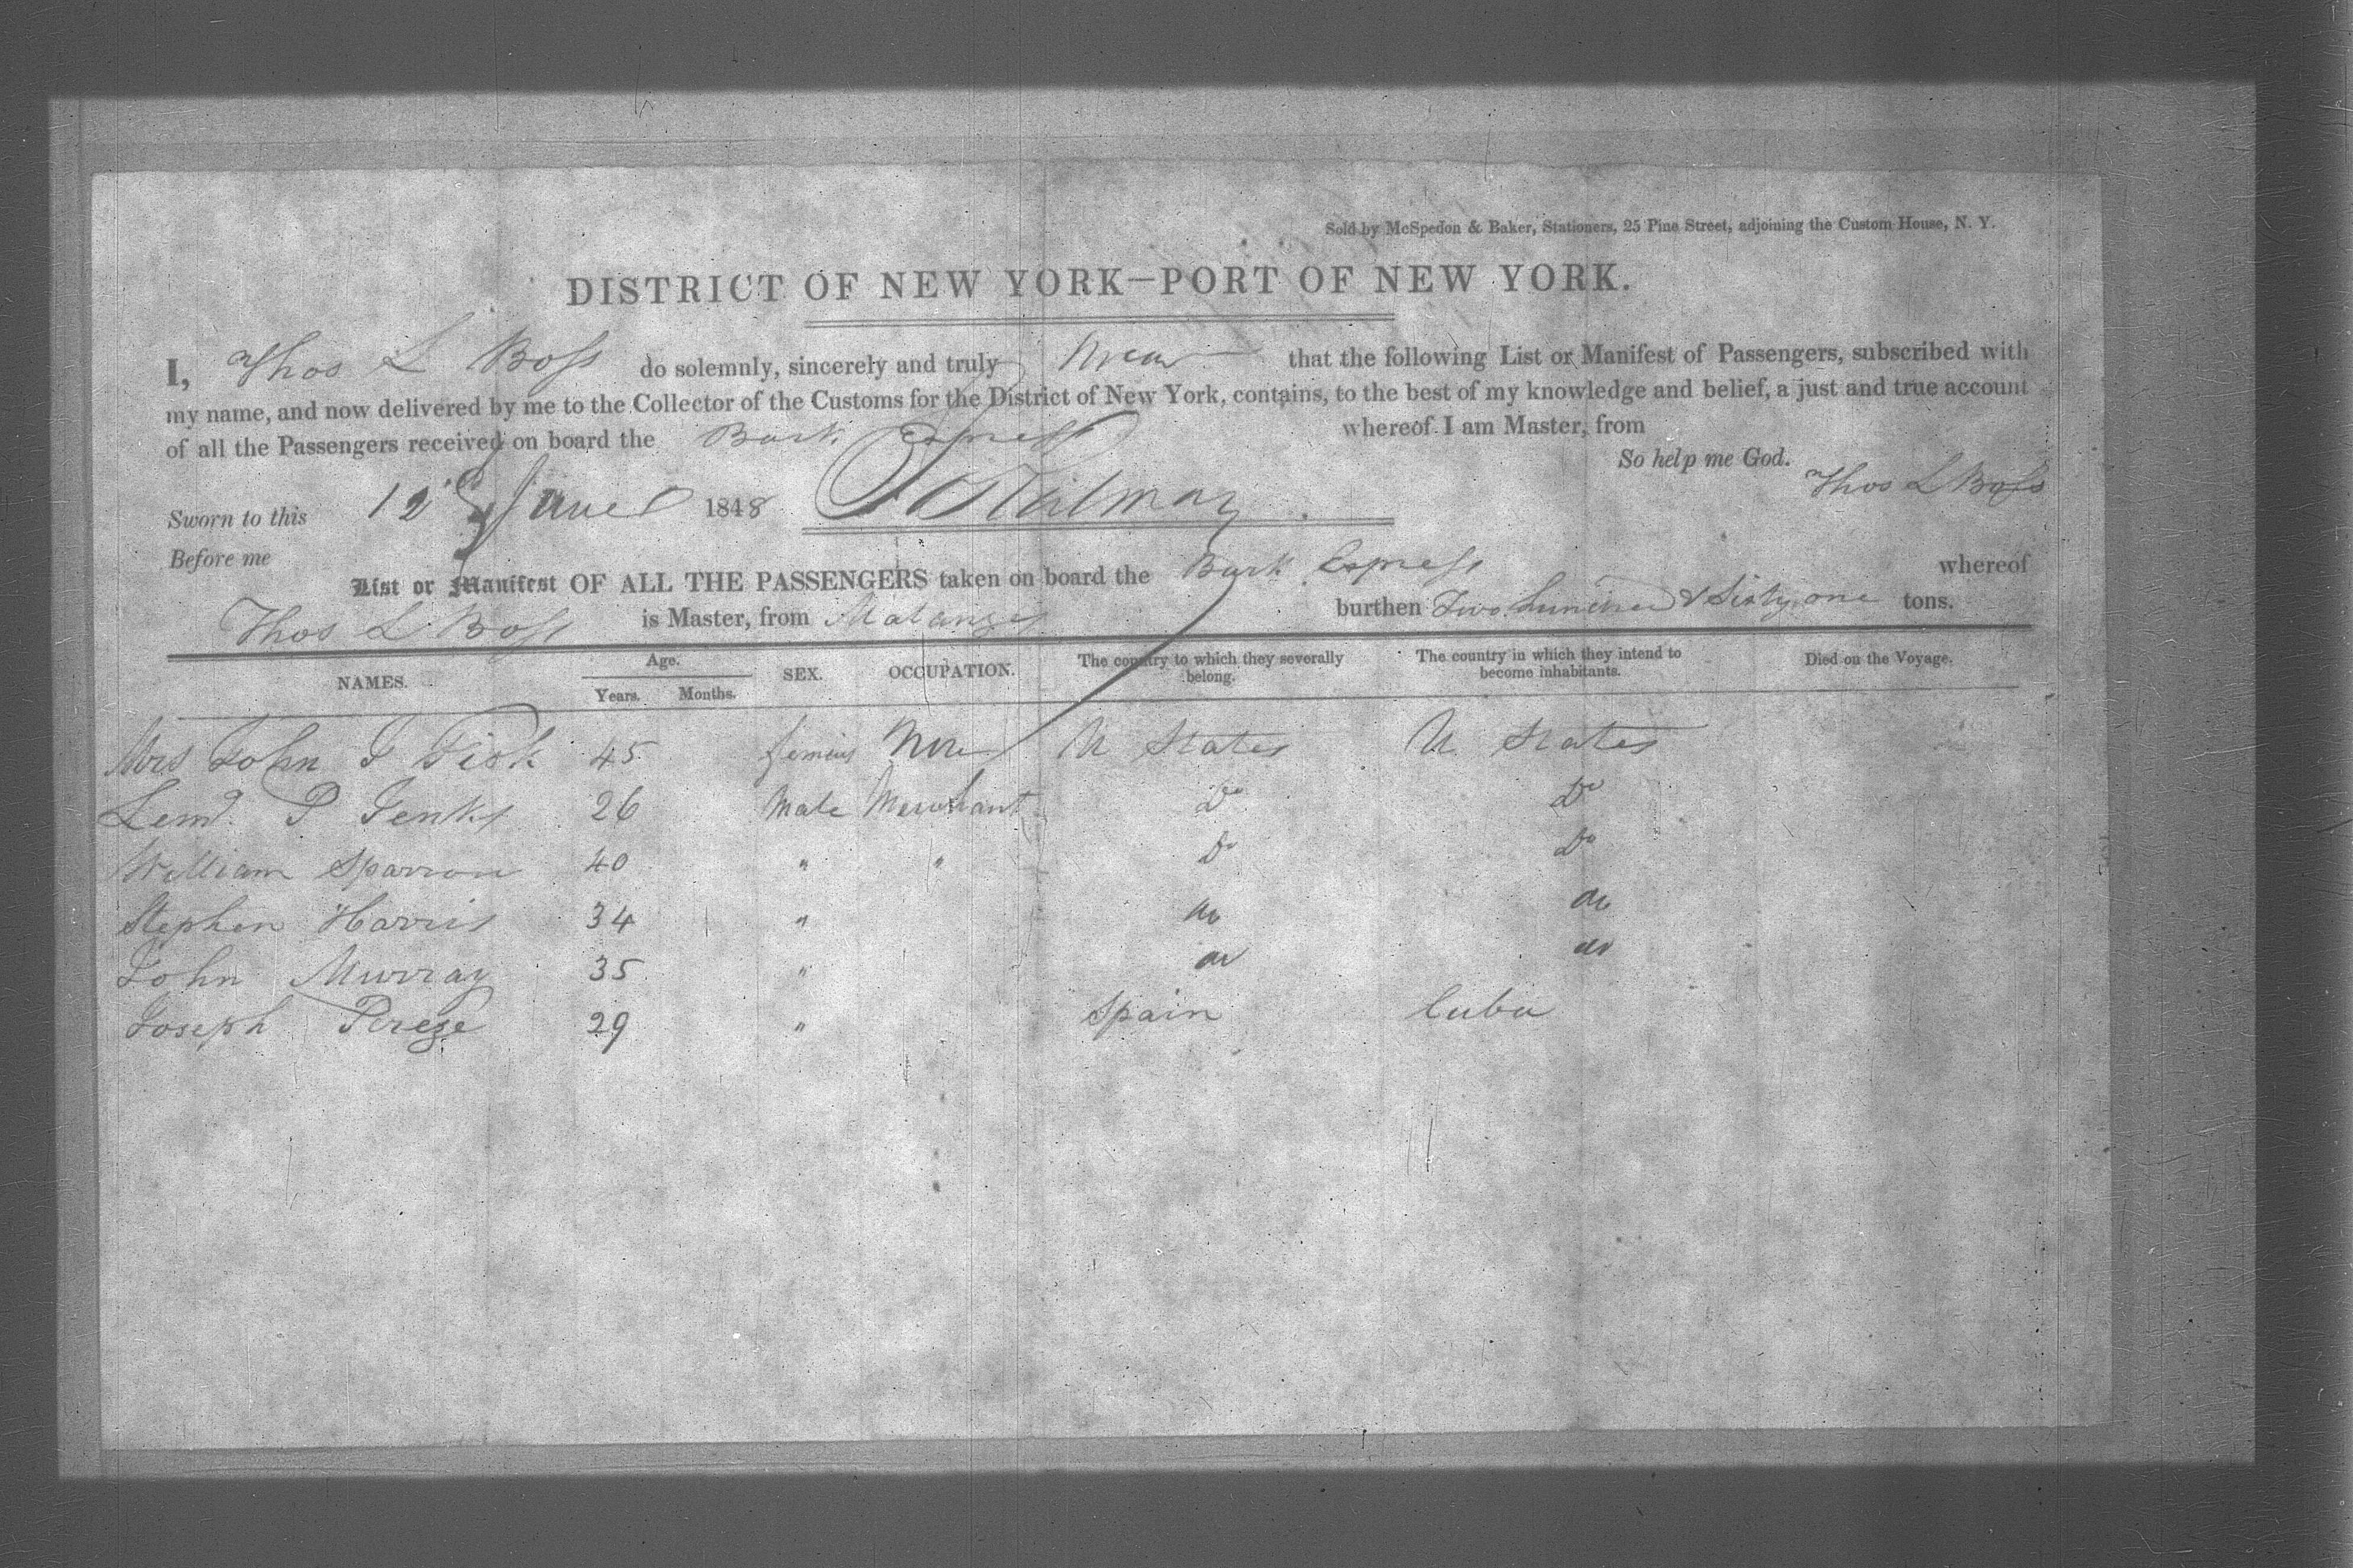 Sold by McSpedon & Baker, Stationers, 25 Pine Street, adjoining the Custom House, N. Y.
DISTRICT OF NEW YORK—PORT OF NEW YORK.
I, Thos L Boss do solemnly, sincerely and truly swear that the following List or Manifest of Passengers, subscribed with
my name, and now delivered by me to the Collector of the Customs for the District of New York, contains, to the best of my knowledge and belief, a just and true account
of all the Passengers received on board the Bark Express whereof I am Master, from
So help me God.
Sworn to this 12 June 1848 Thos L Boss
Before me
List or Manifest OF ALL THE PASSENGERS taken on board the Bark Express whereof
Thos L Boss is Master, from Matanzas burthen Two hundred & Sixty one tons.
NAMES. Age. Years. Months. SEX. OCCUPATION. The country to which they severally belong. The country in which they intend to become inhabitants. Died on the Voyage.
Mrs John G Fisk 45 None U States U States
Leml. P Jenks 26 Male Merchant Do Do
William Sparrow 40 " " Do Do
Stephen Harris 34 " do do
John Murray 35 " do do
Joseph Pereze 29 " Spain Cuba